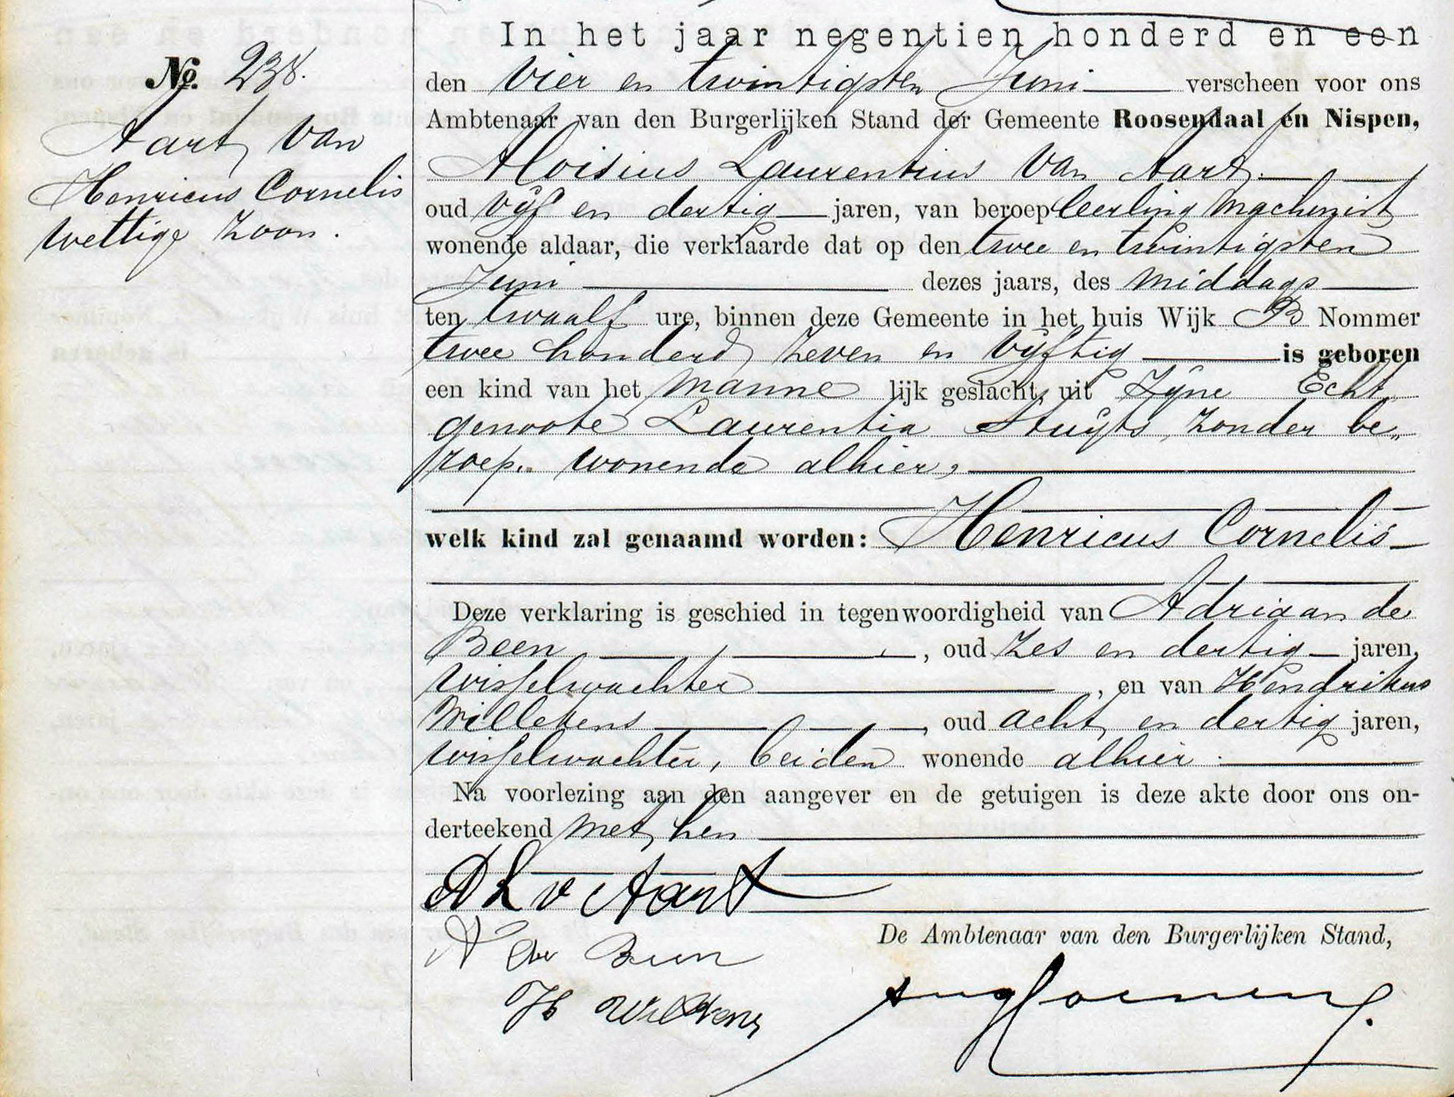 No. 238.
Aart van
Henricus Cornelis
wettige zoon.
In het jaar negentien honderd en een
den vier en twintigsten Juni verscheen voor ons
Ambtenaar van den Burgerlijken Stand der Gemeente Roosendaal en Nispen,
Aloisius Laurentius van Aart
oud vijf en dertig jaren, van beroep leerling machinist
wonende aldaar, die verklaarde dat op den twee en twintigsten
Juni dezes jaars, des middags
ten twaalf ure, binnen deze Gemeente in het huis Wijk B Nommer
twee honderd zeven en vijftig is geboren
een kind van het manne lijk geslacht, uit Zijne Echt,
genoote Laurentia Stuijts, zonder be„
roep„ wonende alhier,
welk kind zal genaamd worden: Henricus Cornelis
Deze verklaring is geschied in tegenwoordigheid van Adriaan de
Been, oud zes en dertig jaren,
wisselwachter, en van Hendrikus
Willekens, oud acht en dertig jaren,
wisselwachter, beiden wonende alhier.
Na voorlezing aan den aangever en de getuigen is deze akte door ons on-
derteekend met hen
A L v Aart
A de Been
H Willekens
De Ambtenaar van den Burgerlijken Stand,